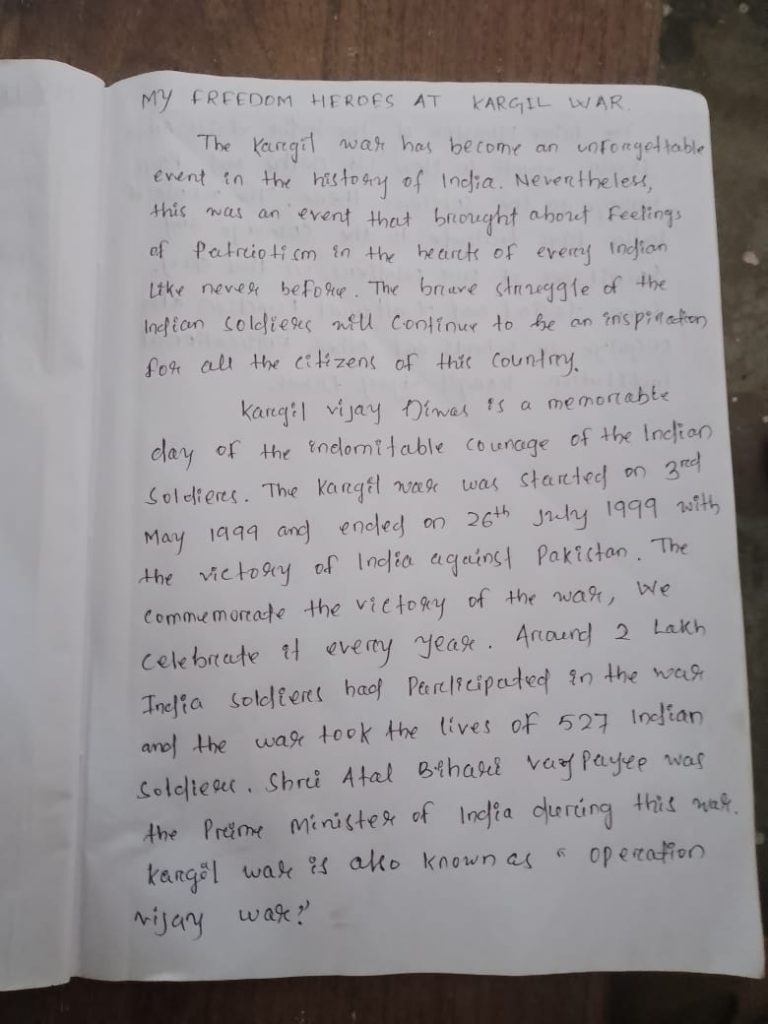 MY FREEDOM HEROES AT KARGIL WAR.
The Kargil war has become an unforgettable
event in the history of India. Nevertheless,
this was an event that brought about Feelings
of Patriotism in the hearts of every Indian
Like never before. The brave struggle of the
Indian soldiers will Continue to be an inspiration
for all the citizens of this Country.
Kargil vijay Diwas is a memorable
day of the indomitable courage of the Indian
Soldiers. The Kargil war was started on 3rd
May 1999 and ended on 26th July 1999 with
the victory of India against Pakistan. The
Commemorate the victory of the war, We
Celebrate it every year. Around 2 Lakh
India soldiers had Participated in the war
and the war took the lives of 527 Indian
Soldiers. Shri Atal Bihari vajPayee was
the Prime Minister of India during this war.
Kargil war is also known as " operation
vijay war."